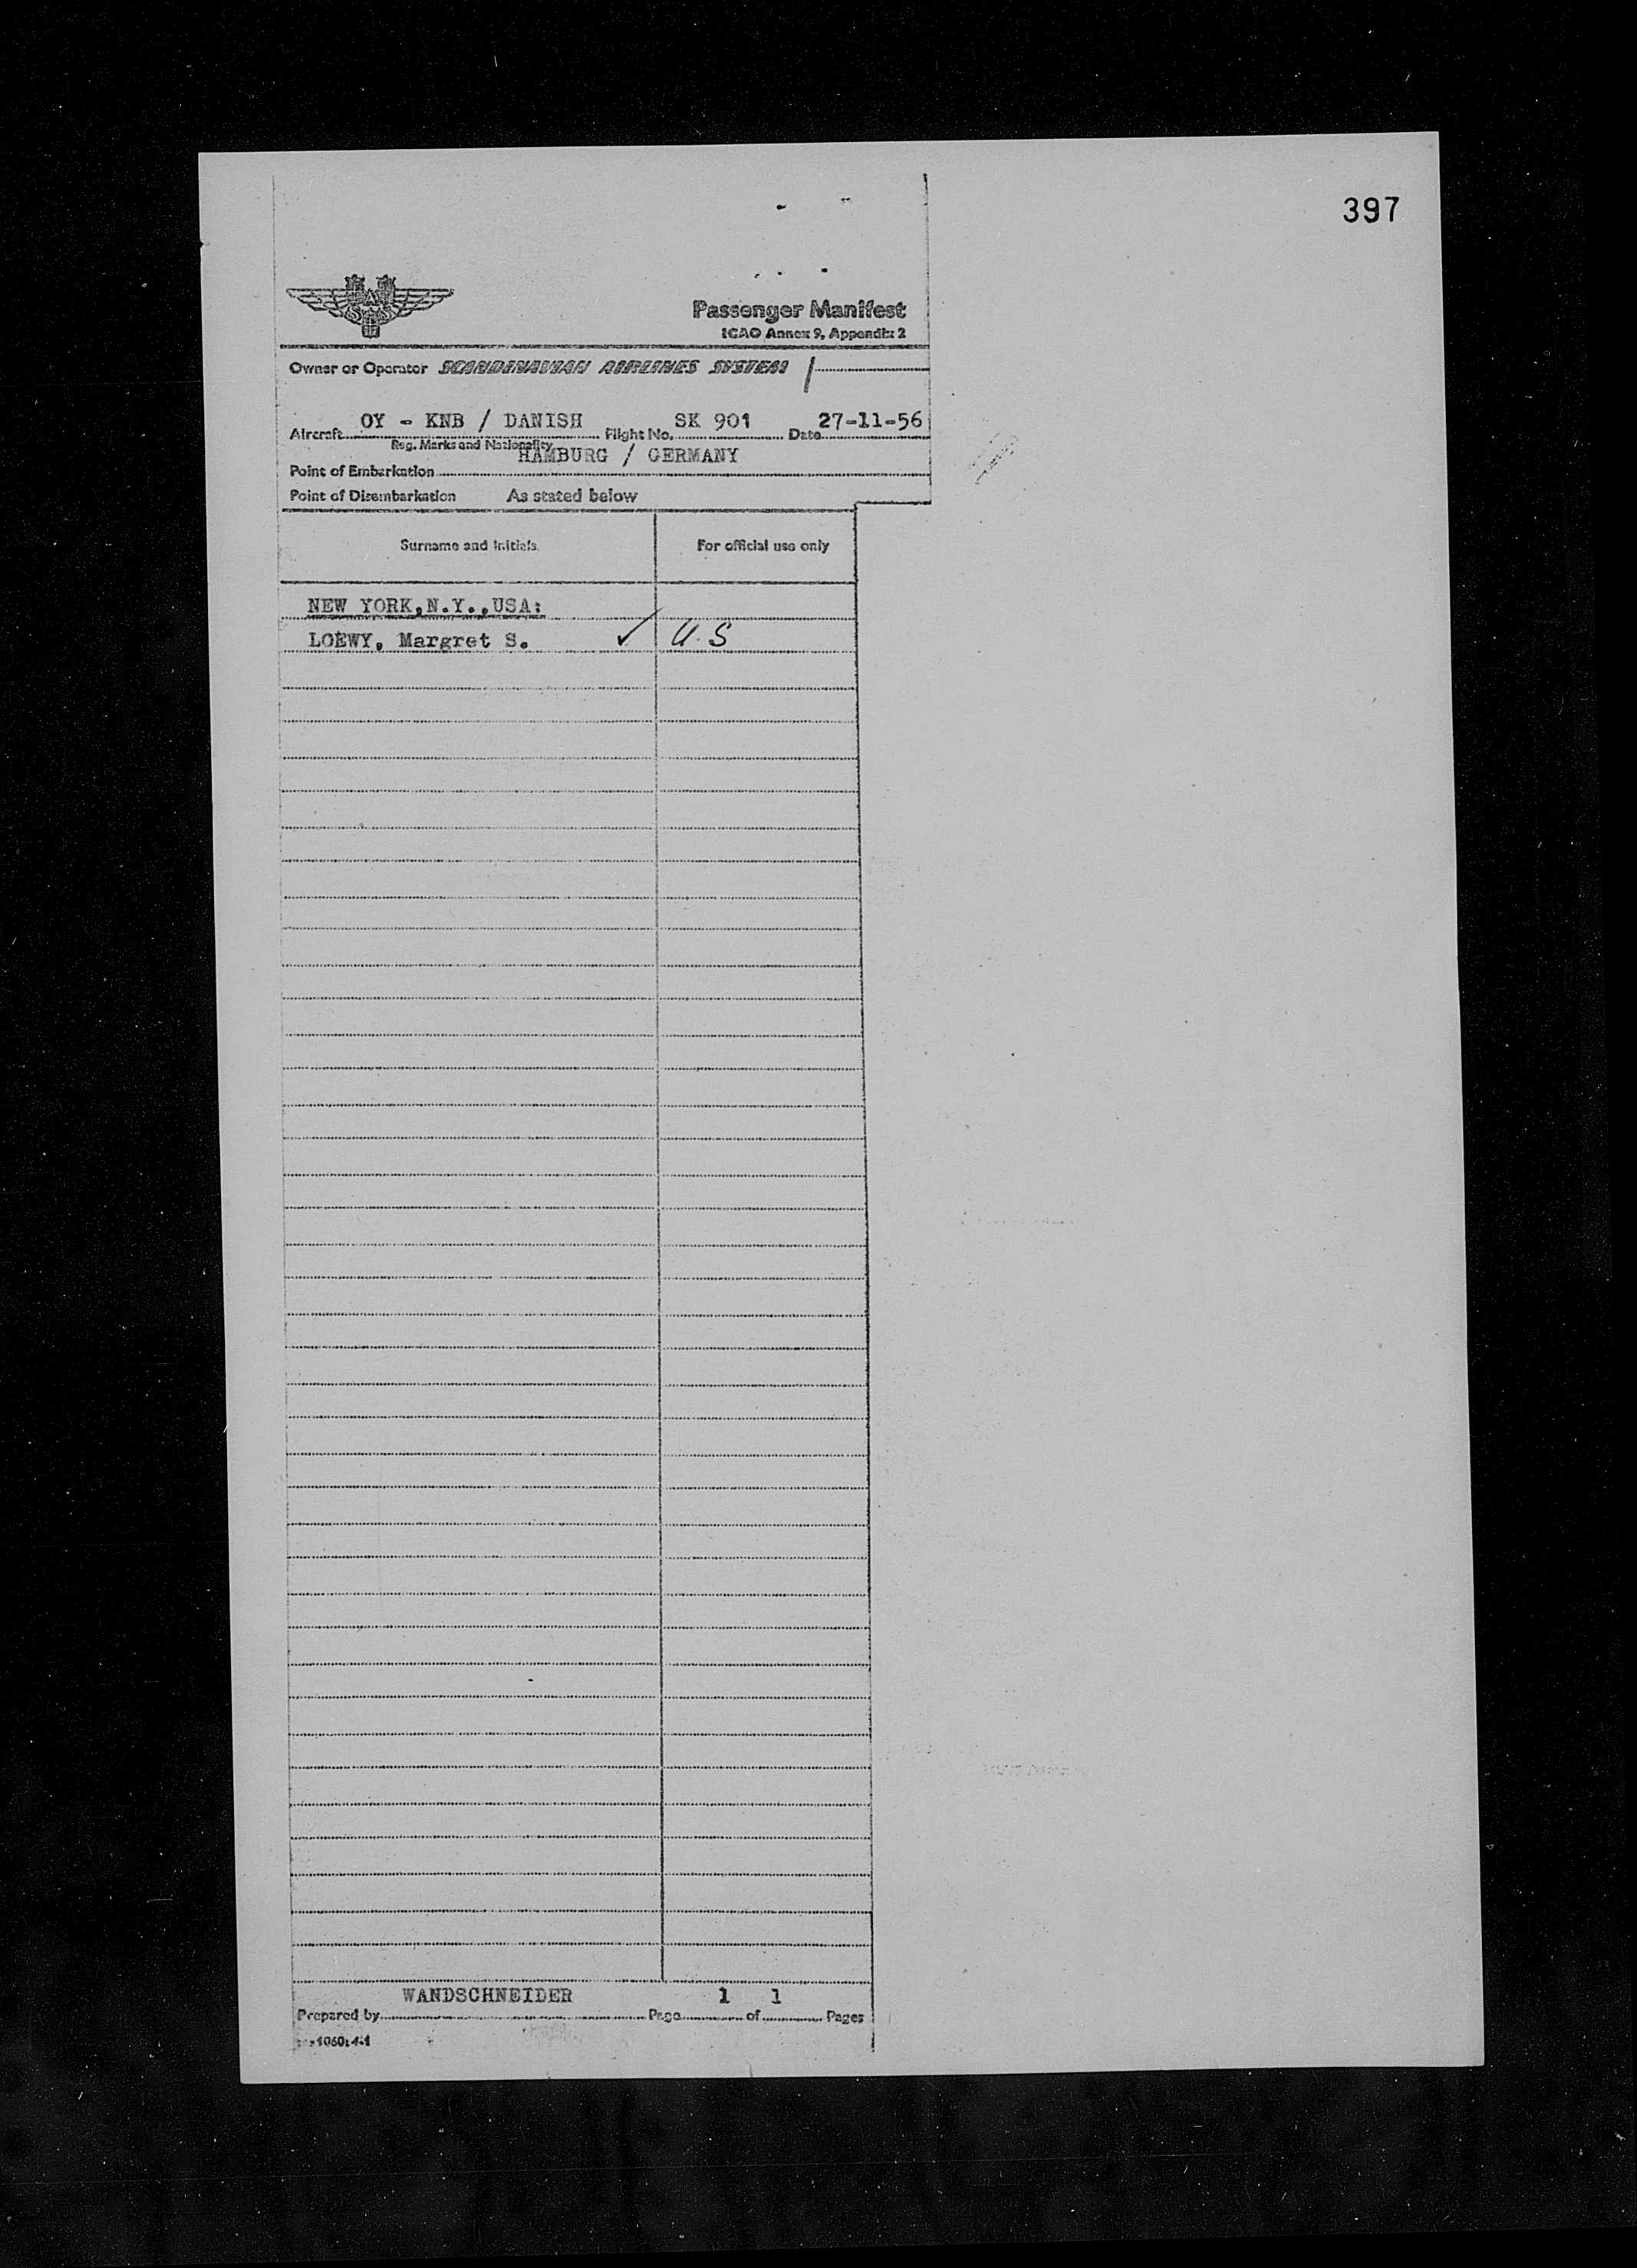 397
SAS
Passenger Manifest
ICAO Annex 9, Appendix 2
Owner or Operator SCANDINAVIAN AIRLINES SYSTEM
Aircraft OY - KNB / DANISH Flight No. SK 901 Date 27-11-56
Reg. Marks and Nationality
Point of Embarkation HAMBURG / GERMANY
Point of Disembarkation As stated below
Surname and Initials For official use only
NEW YORK,N.Y.,USA:
LOEWY, Margret S. ✓ U.S
Prepared by WANDSCHNEIDER Page 1 of 1 Pages
1060:4-1